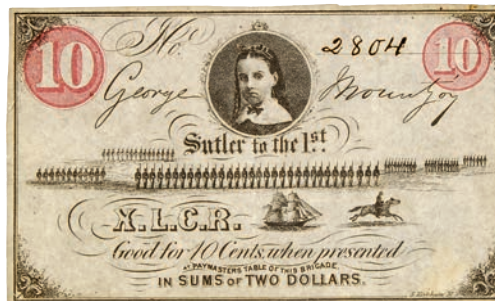 10 No. 2804 10
George Mountjoy
Sutler to the 1st.
N.L.C.R.
Good for 10 Cents, when presented
AT PAYMASTERS TABLE OF THIS BRIGADE,
IN SUMS OF TWO DOLLARS.